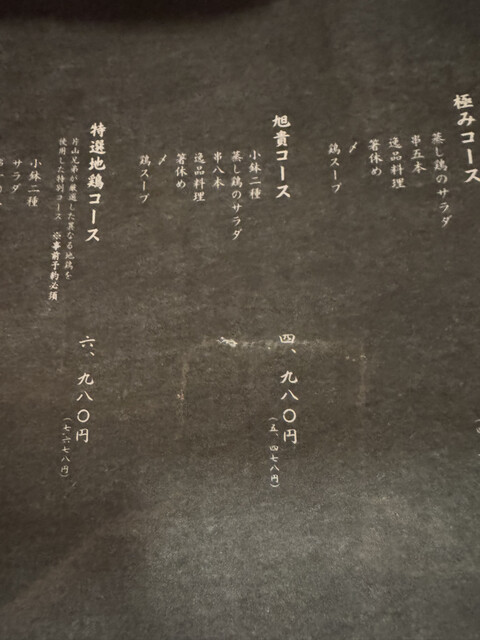 極みコース
蒸し鶏のサラダ
串五本
逸品料理
箸休め
〆
鶏スープ
旭貴コース
小鉢二種
蒸し鶏のサラダ
串八本
逸品料理
箸休め
〆
鶏スープ
四、九八〇円
（五、四七八円）
特選地鶏コース
片山兄弟が厳選した異なる地鶏を
使用した特別コース ※事前予約必須
小鉢二種
サラダ
六、九八〇円
（七、六七八円）